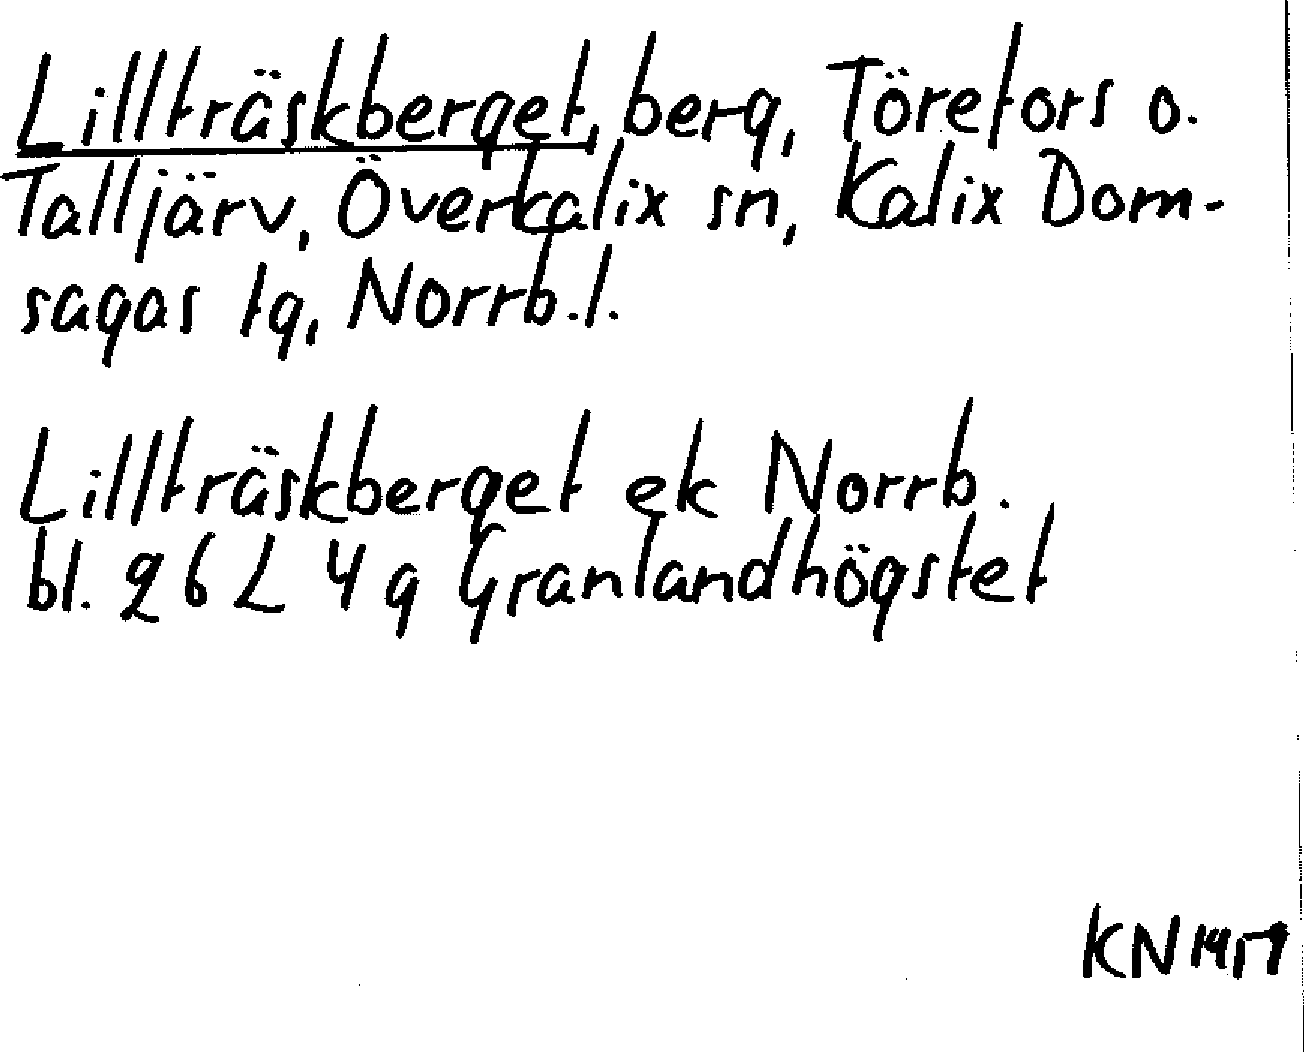 Lillträskberget, berg, Törefors o.
Talljärv, Överkalix sn, Kalix Dom-
sagas tg, Norrb.l.
Lillträskberget ek Norrb.
bl. 26 L 4 g Granlandhögstet
KN